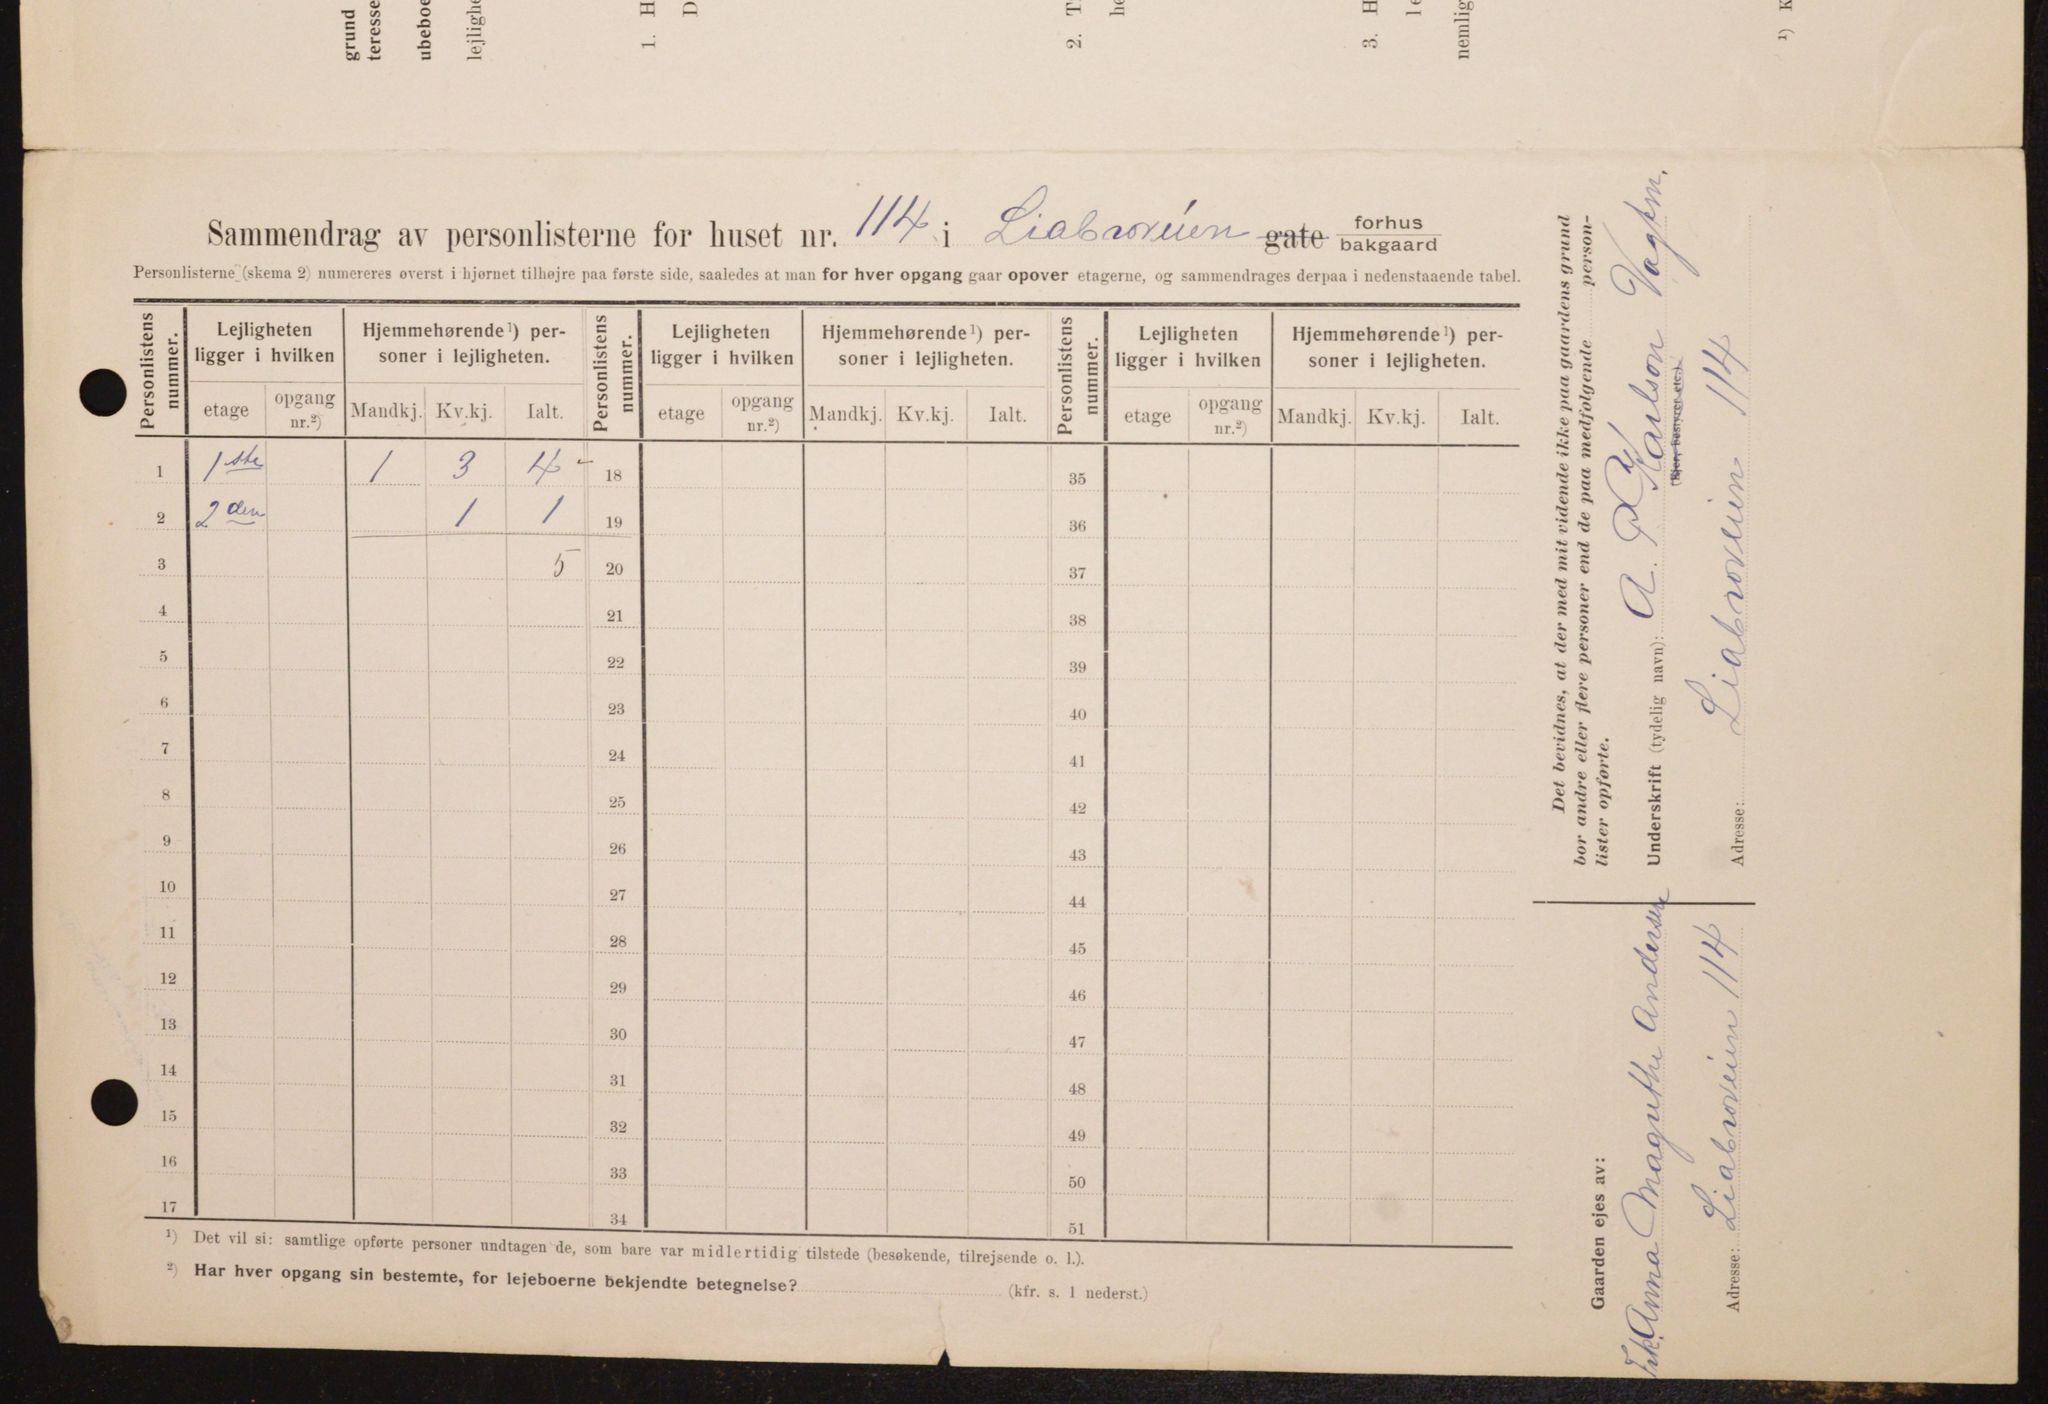 grund
teresse
ubeboe
lejlighe
1. H
D
2. T
he
3. H
le
nemlig
¹) K
Sammendrag av personlisterne for huset nr. 114 i Liabroveien gate forhus bakgaard
Personlisterne (skema 2) numereres øverst i hjørnet tilhøjre paa første side, saaledes at man for hver opgang gaar opover etagerne, og sammendrages derpaa i nedenstaaende tabel.
Personlistens nummer. Lejligheten ligger i hvilken Hjemmehørende¹) personer i lejligheten. Personlistens nummer. Lejligheten ligger i hvilken Hjemmehørende¹) personer i lejligheten. Personlistens nummer. Lejligheten ligger i hvilken Hjemmehørende¹) personer i lejligheten.
etage opgang nr.²) Mandkj. Kv.kj. Ialt. etage opgang nr.²) Mandkj. Kv.kj. Ialt. etage opgang nr.²) Mandkj. Kv.kj. Ialt.
1 1ste 1 3 4 18 35
2 2den 1 1 19 36
3 5 20 37
4 21 38
5 22 39
6 23 40
7 24 41
8 25 42
9 26 43
10 27 44
11 28 45
12 29 46
13 30 47
14 31 48
15 32 49
16 33 50
17 34 51
¹) Det vil si: samtlige opførte personer undtagen de, som bare var midlertidig tilstede (besøkende, tilrejsende o. l.).
²) Har hver opgang sin bestemte, for lejeboerne bekjendte betegnelse? (kfr. s. 1 nederst.)
Det bevidnes, at der med mit vidende ikke paa gaardens grund
bor andre eller flere personer end de paa medfølgende person-
lister opførte.
Underskrift (tydelig navn): A. Karlson
(Ejer, bestyrer etc.)
Adresse: Liabroveien 114
Gaarden ejes av:
Anna Magrethe Andersen
Adresse: Liabroveien 114